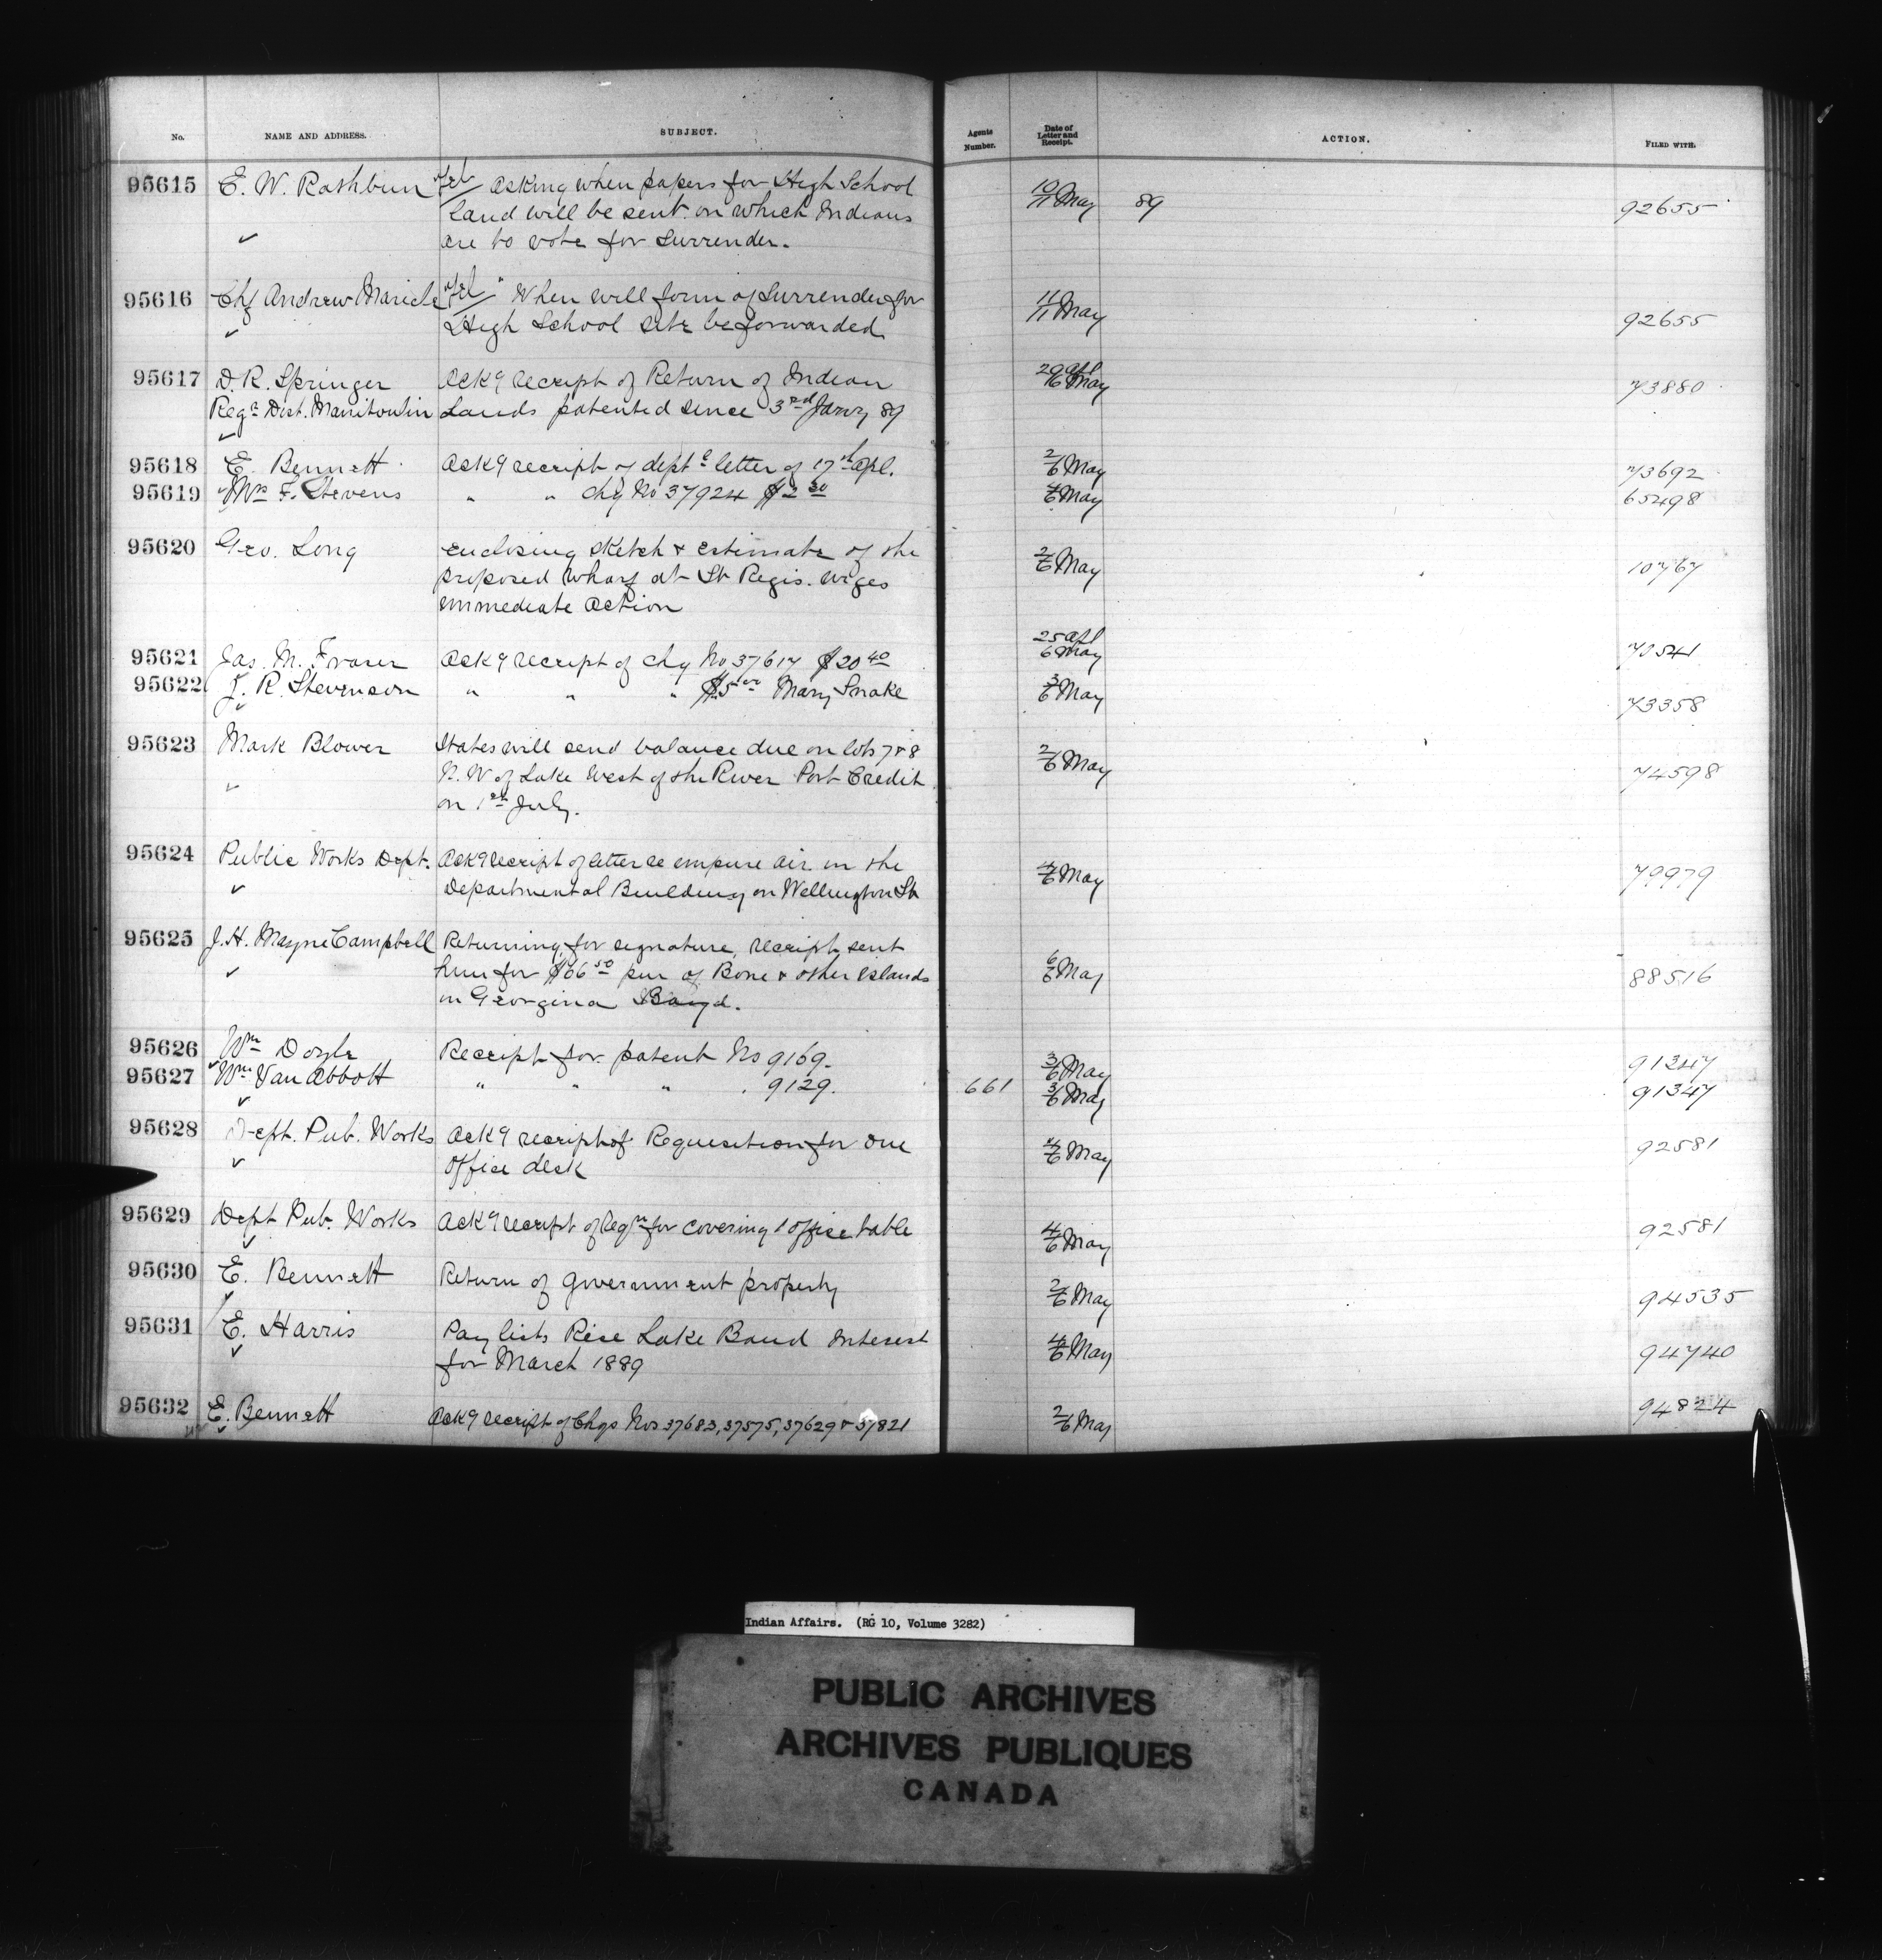 No. NAME AND ADDRESS. SUBJECT. Agents Number. Date of Letter and Receipt. ACTION. FILED WITH.
95615 E. W. Rathbun Tel asking when papers for High School 10/11 May 89 92655
Land will be sent on which Indians
are to vote for Surrender.
95616 Chf Andrew Maricle Tel " When will form of Surrender for 11/11 May 92655
High School site be forwarded
95617 D. R. Springer Ackg receipt of Return of Indian 29 Apl 6 May 73880
Regr Dist. Manitoulin Lands patented since 3rd Jany 89
95618 E. Bennett Ackg receipt of deptl letter of 17th Apl. 2/6 May 73692
95619 Mrs F. Stevens " " Chq No 37924 $2 4/6 May 65498
95620 Geo. Long enclosing sketch & estimate of the 2/6 May 10767
proposed wharf at St Regis. urges
immediate action
95621 Jas. M. Fraser Ackg receipt of chq No 37617 $20 40 25 Apl 6 May 70541
95622 J. R. Stevenson " " " $5 00 Mary Snake 3/6 May 73358
95623 Mark Blower States will send balance due on lots 7 & 8 2/6 May 74598
N. W of Lake West of the River Port Credit
on 1st July.
95624 Public Works Dept. Ackg receipt of letter re impure air in the 4/6 May 79979
Departmental Building on Wellington St
95625 J. H. Mayne Campbell Returning for signature, receipt sent 6/6 May 88516
him for $66 50 pur of Bone & other Islands
in Georgina
95626 Wm Doyle Receipt for patent No 9169. 3/6 May 91347
95627 Wm Van Abbott " " " 9129. 661 3/6 May 91347
95628 Dept. Pub. Works Ackg receipt of Requisition for one 4/6 May 92581
office desk
95629 Dept Pub. Works Ackg receipt of Reqn for covering 1 office table 4/6 May 92581
95630 E. Bennett Return of Government property 2/6 May 94535
95631 E. Harris Pay lists Rice Lake Band Interest 4/6 May 94740
for March 1889
95632 E. Bennett Ackg receipt of Chqs Nos 37683, 37575, 37629 & 37821 2/6 May 94824
Indian Affairs. (RG 10, Volume 3282)
PUBLIC ARCHIVES
ARCHIVES PUBLIQUES
CANADA